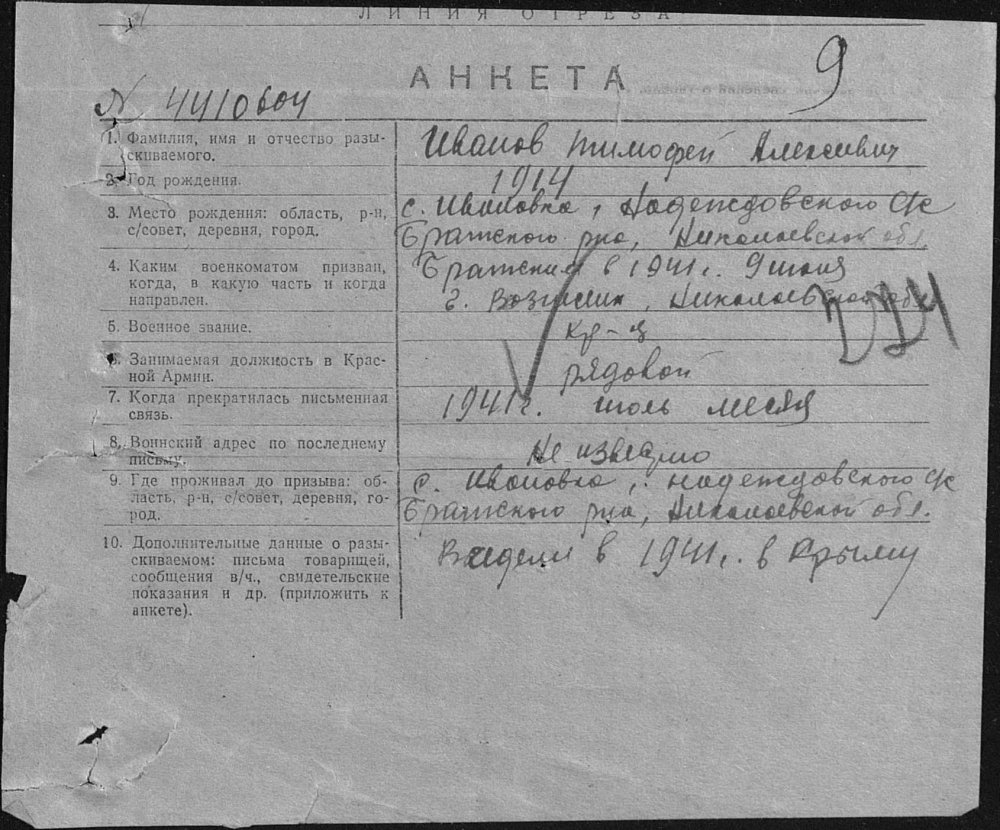 ЛИНИЯ ОТРЕЗА
9
АНКЕТА
№ 4410604
1. Фамилия, имя и отчество разы-
скиваемого.
Иванов Тимофей Алексеевич
2. Год рождения.
1914
3. Место рождения: область, р-н,
с/совет, деревня, город.
с. Ивановка, Надеждовского с/с
Братского р-на, Николаевской обл.
4. Каким военкоматом призван,
когда, в какую часть и когда
направлен.
Братским в 1941 г. 9 июля
г. Вознесенск, Николаевской обл.
5. Военное звание.
кр-ц
6. Занимаемая должность в Крас-
ной Армии.
рядовой
7. Когда прекратилась письменная
связь.
1941 г. июль месяц
8. Воинский адрес по последнему
письму.
Не известно
9. Где проживал до призыва: об-
ласть, р-н, с/совет, деревня, го-
род.
с. Ивановка, Надеждовского с/с
Братского р-на, Николаевской обл.
10. Дополнительные данные о разы-
скиваемом: письма товарищей,
сообщения в/ч., свидетельские
показания и др. (приложить к
анкете).
Видели в 1941 г. в Крыму